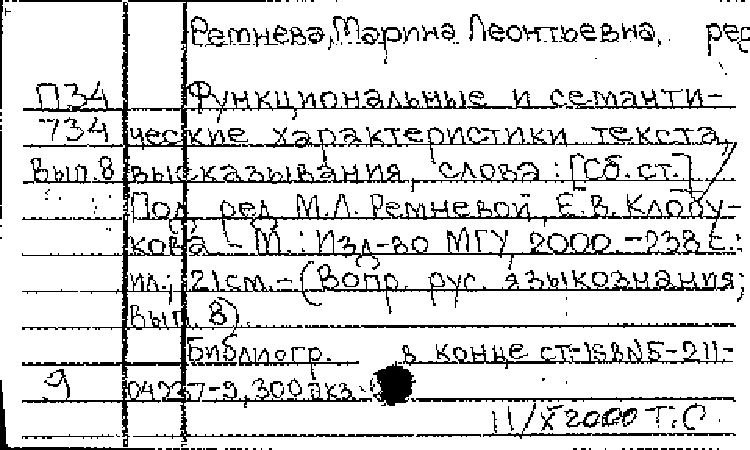 Ремнева, Марина Леонтьевна, ред
П34 Функциональные и семанти-
734 ческие характеристики текста,
Вып.8 высказывания, слова: [Сб. ст.]
Под ред. М.Л. Ремневой, Е.В. Клобу-
кова - М.: Изд-во МГУ, 2000. - 238 с.:
ил.; 21см. - (Вопр. рус. языкознания;
Вып. 8).
Библиогр. в конце ст.-ISBN5-211-
9 04237-9, 300 экз.
11/X 2000 Т.С.